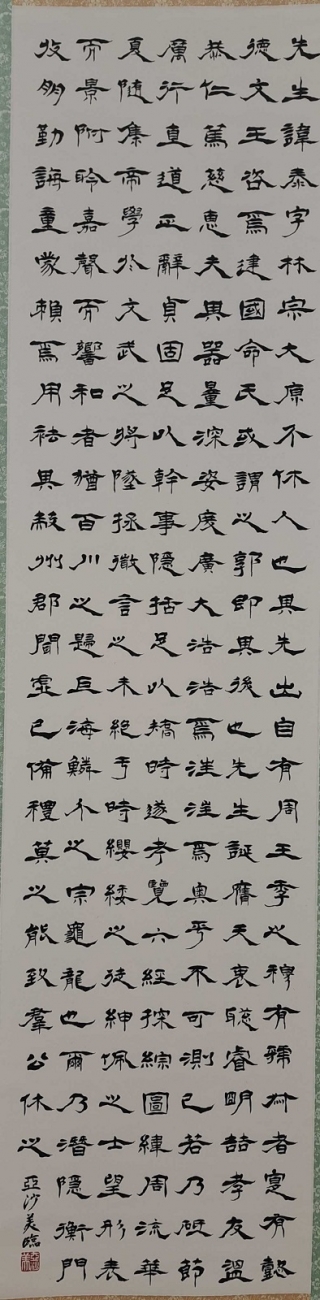 先生諱泰字林宗大原不休人也其先出自有周王季之穆有虢叔者寔有懿
德文王咨焉建國命氏或謂之郭即其後也先生誕膺天衷聡睿明喆孝友溫
恭仁篤慈惠夫其器量深姿度廣大浩浩焉汪汪焉奧乎不可測已若乃砥節
厲行直道正辭貞固足以幹事隱括足以矯時遂考覽六經探綜圖緯周流華
夏隨集帝學於文武之將墜拯微言之未絕于時纓緌之徒紳佩之士望形表
而景附聆嘉聲而響和者猶百川之歸巨海鱗介之宗龜龍也爾乃潛隱衡門
收朋勤誨童蒙賴焉用祛其蔽州郡聞虛已備禮莫之能致羣公休之
亞沙美臨